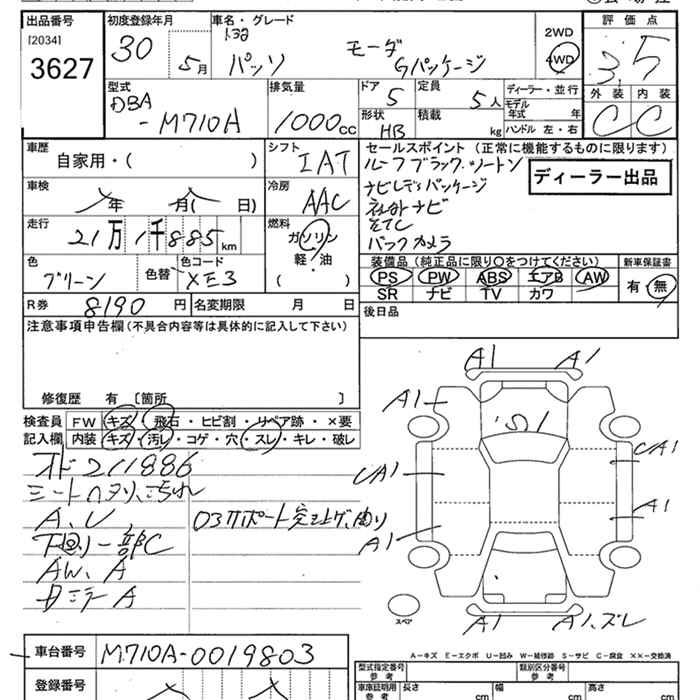 出品番号
[2034]
3627
初度登録年月
30
5月
車名・グレード
132
パッソ
モーダ
Gパッケージ
2WD
4WD
評価点
3.5
外装 内装
C C
型式
DBA
-M710A
排気量
1000cc
ドア
5
定員
5人
形状
HB
積載
kg
ディーラー・並行
モデル年式 年
ハンドル 左・右
車歴
自家用・( )
シフト
IAT
セールスポイント (正常に機能するものに限ります)
ルーフ ブラック ツートン
ナビレディパッケージ
ETC
バックカメラ
ディーラー出品
車検
年 月( 日)
冷房
AAC
走行
21万1千885km
燃料
ガソリン
軽・油
( )
色
グリーン
色替
色コード
XE3
装備品 (純正品に限り○をつけてください)
PS PW ABS エアB AW
SR ナビ TV カワ
新車保証書
有・無
R券
8190円
名変期限 月 日
後日品
注意事項申告欄(不具合内容等は具体的に記入して下さい)
修復歴 有 〔箇所 〕
検査員記入欄
FW キズ・飛石・ヒビ割・リペア跡・×要
内装 キズ・汚レ・コゲ・穴・スレ・キレ・破レ
オド211886
シートヘタリ、汚れ
A、U、
下回り一部C
AW、A
A
A1 A1
A1
A1
A1
A1
A1 A1、ズレ
スペア
A-キズ E-エクボ U-凹み W-補修跡 S-サビ C-腐食 XX-交換済
車台番号
M710A-0019803
登録番号
型式指定番号
参考
類別区分番号
参考
車庫証明用
参考
長さ cm
幅 cm
高さ cm